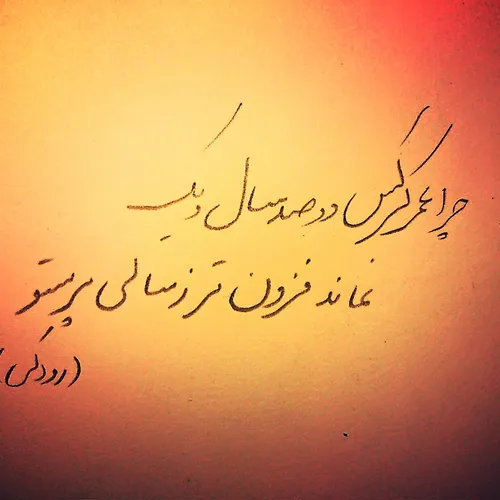 چرا عمر کرکس دوصد سال ویک
نماند فزون تر ز سالی پرستو
(رودکی)